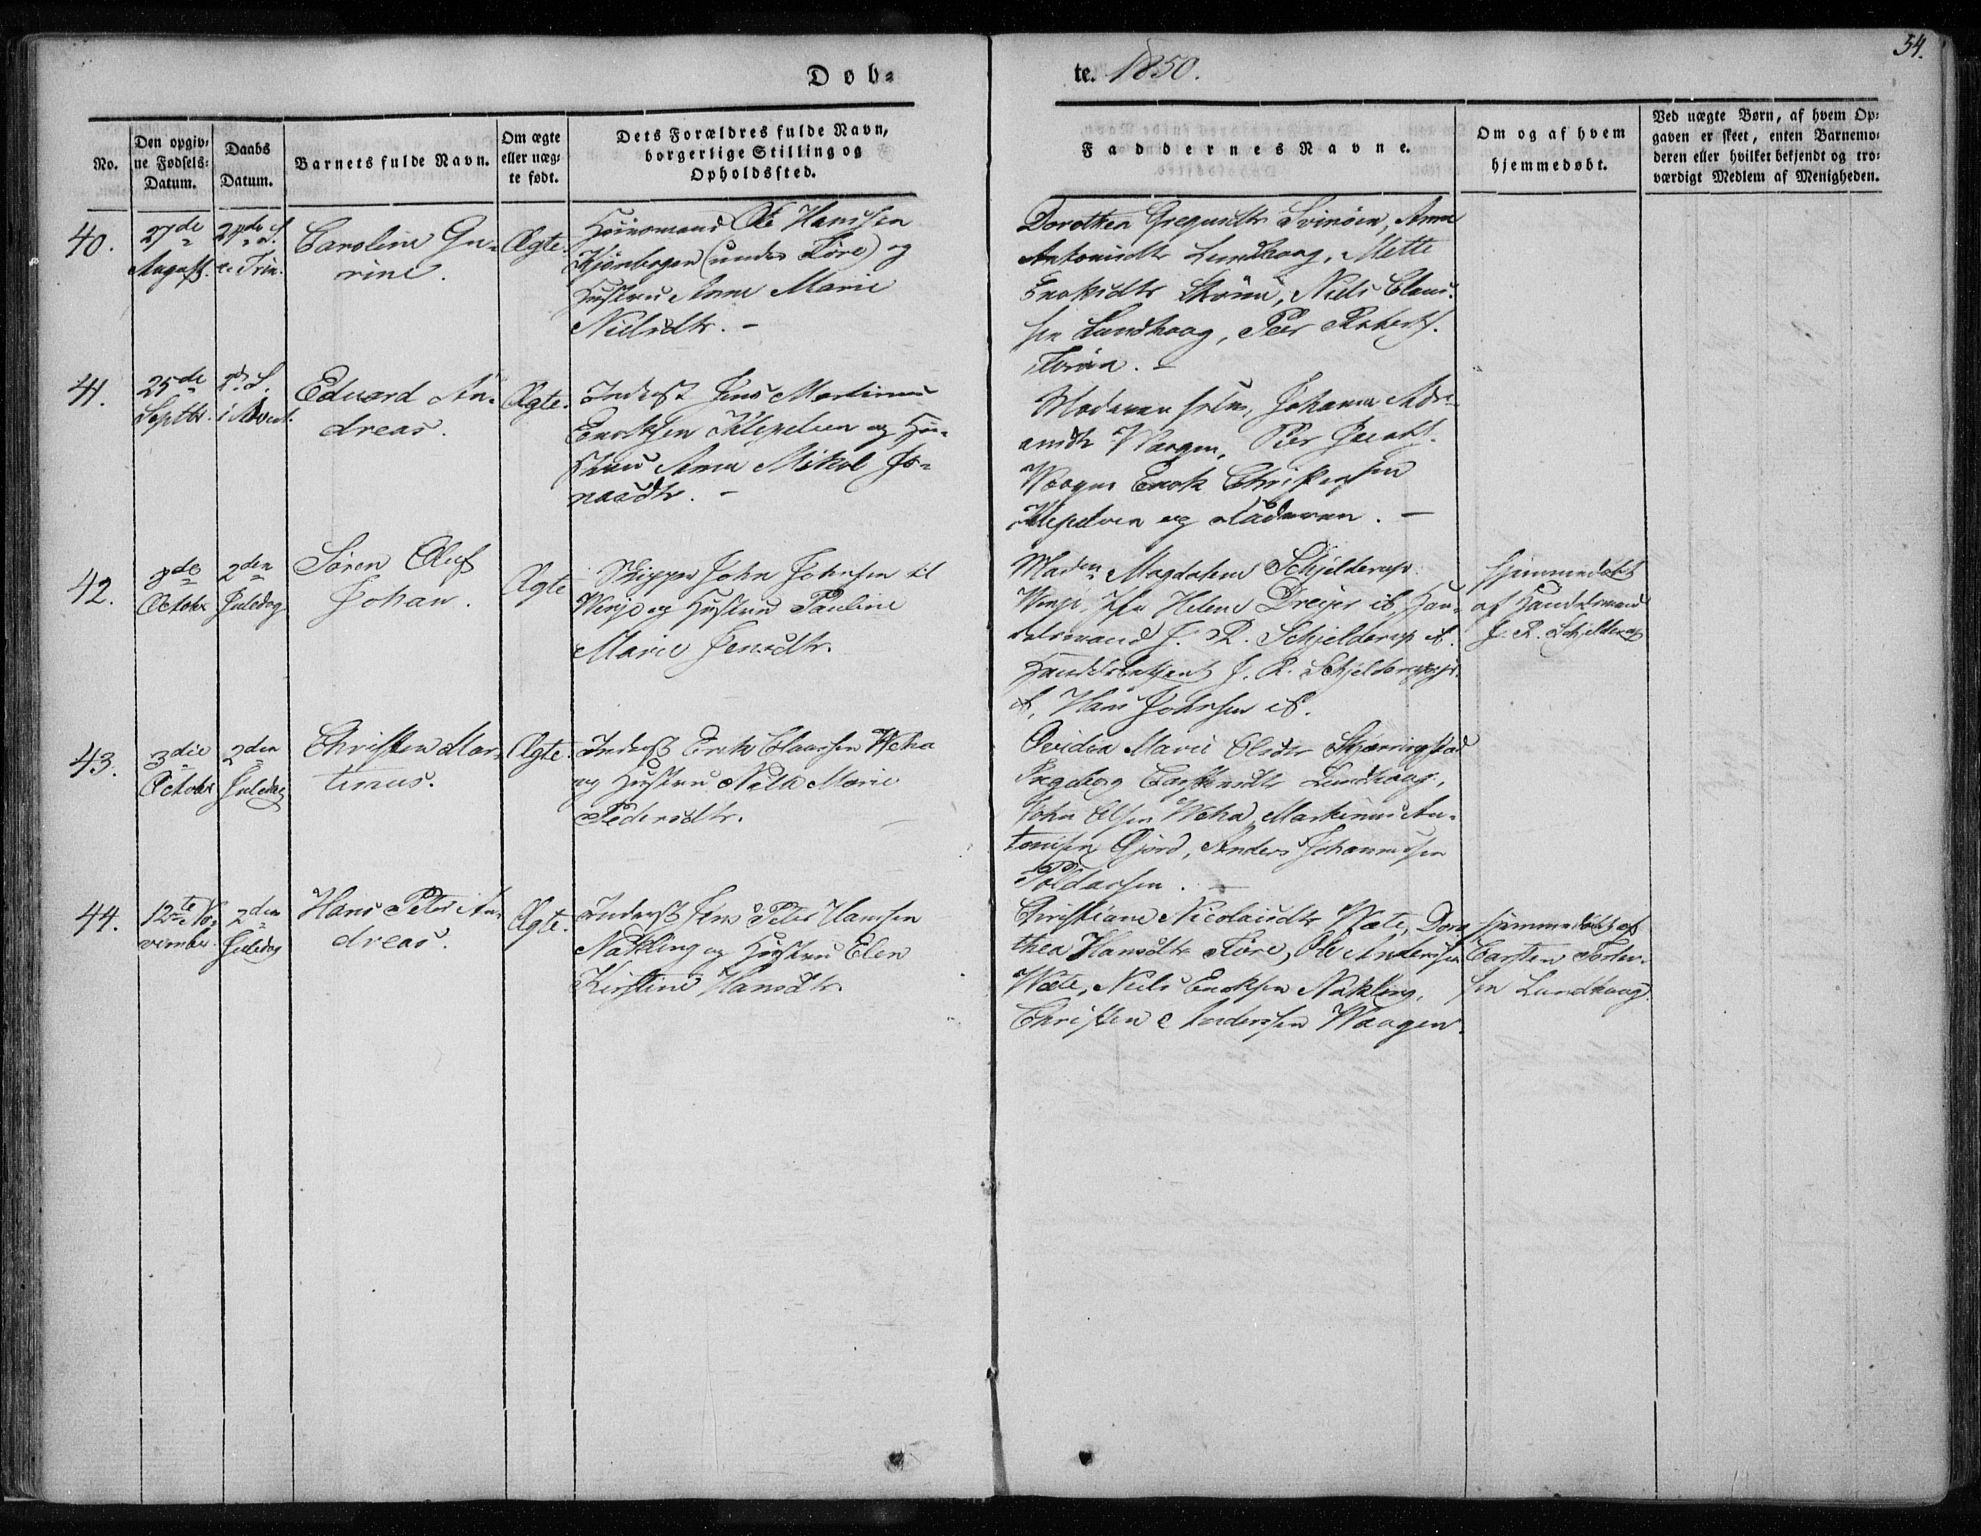 54.
Døb-
te. 1850.
No.
Den opgiv-
ne Fødsels-
Datum.
Daabs
Datum.
Barnets fulde Navn.
Om ægte
eller uæg-
te født.
Dets Forældres fulde Navn,
borgerlige Stilling og
Opholdssted.
Faddernes Navne.
Om og af hvem
hjemmedøbt.
Ved uægte Børn, af hvem Op-
gaven er skeet, enten Barnemo-
deren eller hvilket bekjendt og tro-
værdigt Medlem af Menigheden.
40.
27de
August.
27de S.
e. Trin.
Caroline Gu-
rine.
Ægte.
Huusmand Ole Hanssen
(under Føre) og
Hustru Anne Marie
Nielsdtr. -
Dorothea Svinøen, Anne
Antonisdtr Lundhaag, Mette
Enoksdtr Skoven, Niels Claus-
sen Lundhaag, Peer Roberts.
41.
25de
Septbr.
2d S.
i Advent.
Eduard An-
dreas.
Ægte.
Inderst Jens Martinus
Enoksen Klepelven og Hu-
stru Anna Mikol Jo-
nasdtr. -
Moderen selv, Johanna
Waagen, Peer Jacobs.
Waagen Enok Christensen
Klepelven og Faderen. -
42.
3de
Octobr
2den
Juledag
Søren Oluf
Johan.
Ægte
Skipper John Johnsen til
og Hustru Pauline
Marie Jensdtr.
Magdalena Schjelderup
Jfr Helene Dreyer ib, Han-
delsmand J. R. Schjelderup ib.
J. R. Schjelderup jr.
ib, Hans Johnsen ib.
Hjemmedøbt
af Handelsmand
J. R. Schjelderup
43.
3die
Octobr
2den
Juledag
Christen Mar-
tinus.
Ægte.
Inderst Erik Claussen Weha
og Hustru Nella Marie
Pedersdtr.
Ovidia Marie Olsdtr Skjerringstad
Ingeborg Carstensdtr Lundhaag,
John Olsen Weha, Martinus An-
tonisen Gjord, Anders Johannesen
44.
12te No-
vembr.
2den
Juledag
Hans Peter An-
dreas.
Ægte.
Inderst Jens Peter Hanssen
Nakling og Hustru Elen
Kirstine Hansdtr
Christiane Nicolaisdtr Wæte, Doro-
thea Hansdtr Føre, Ole Anderssen
Wæte, Niels Enoksen Nakling,
Christen Anderssen Waagen.
Hjemmedøbt af
Carsten Torber-
sen Lundhaag.